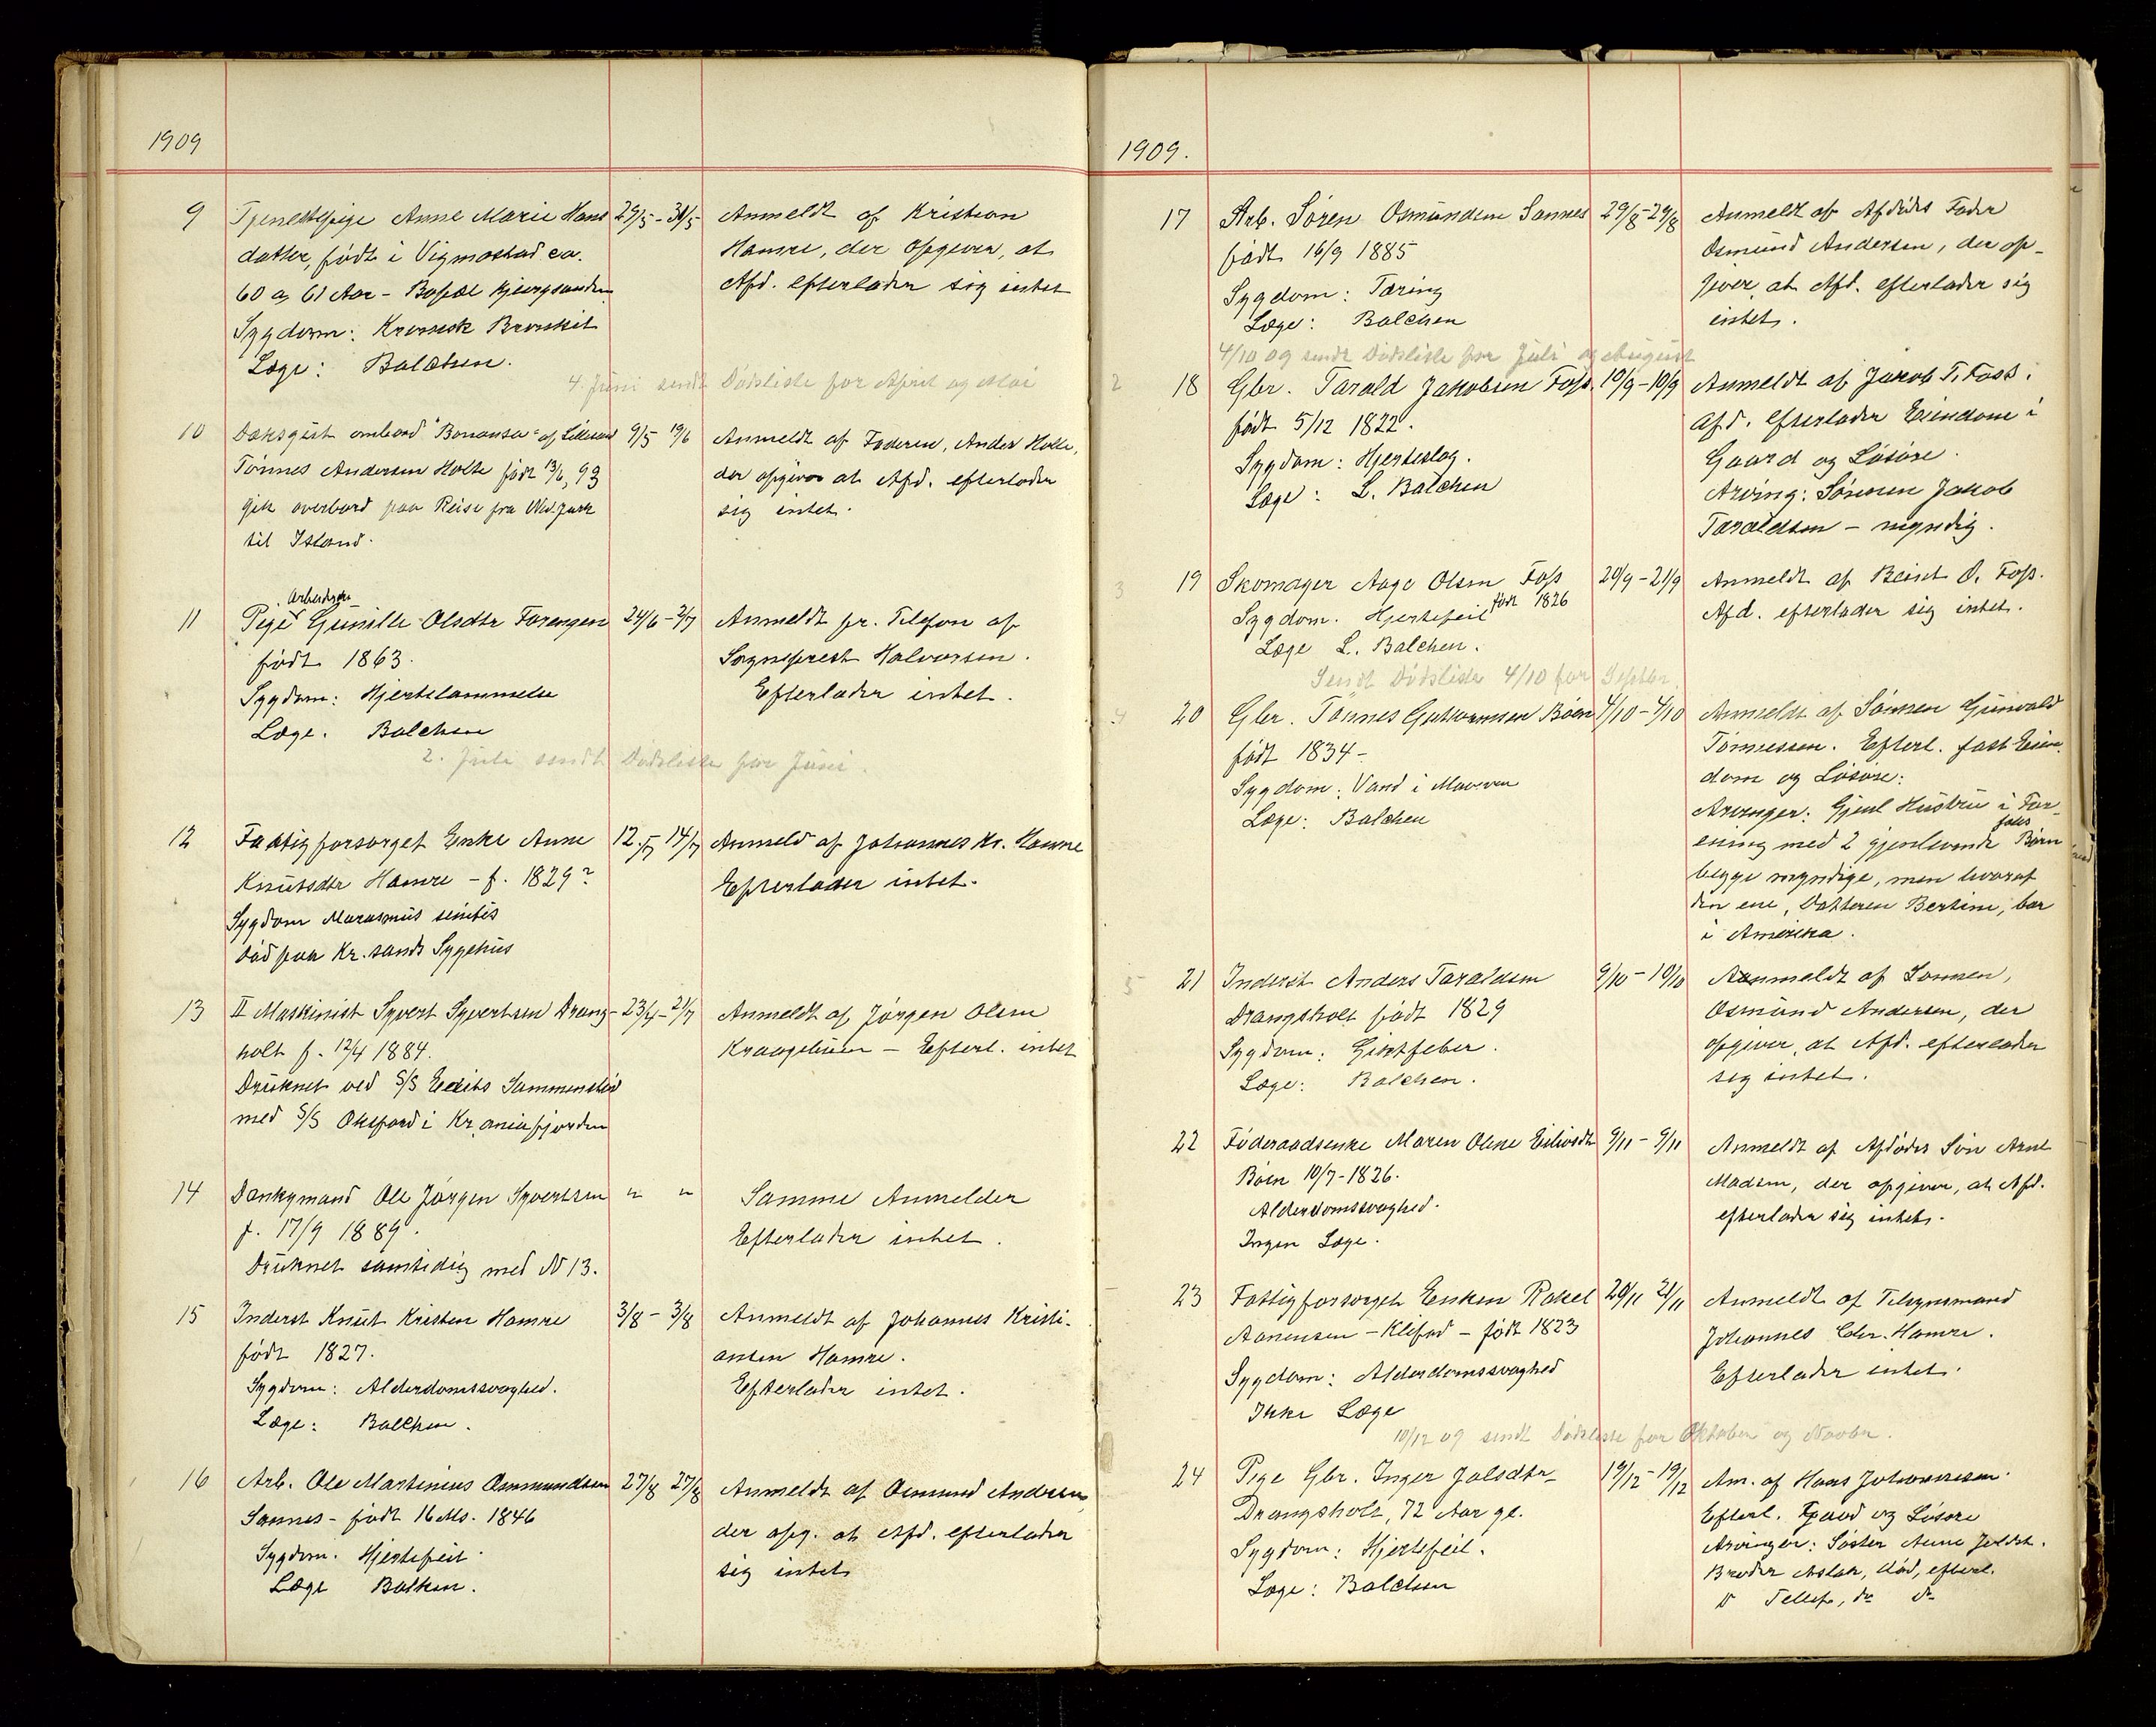 1909
9 Tjenestepige Anne Marie Hans 29/5 - 31/5 Anmeldt af Kristian
datter, født i Vigmostad ca. Hamre, der opgiver, at
60 a 61 Aar - Bopæl Afd. efterlader sig intet
Sygdom: Kronisk Bronkit
Læge: Balchen.
4. Juni sendt Dødsliste for April og Mai
10 Dæksgut ombord "Bonansa" af Lillesand 9/5 19/6 Anmeldt af Faderen, Anders Holte,
Tønnes Andersen Holte født 13/6, 93 der opgiver at Afd. efterlader
gik overbord paa Reise fra sig intet.
til Island.
Arbeider
11 Pige Gunille Olsdtr 24/6 - 2/7 Anmeldt pr. Telefon af
født 1863. Sogneprest Halvorsen.
Sygdom: Hjertelammelse Efterlader intet.
Læge. Balchen
2. Juli sendt Dødsliste for Juni.
12 Fattigforsørget Enke Anne 12/7 14/7 Anmeld af Johannes Kr. Hamre
Knutsdtr Hamre - f. 1829? Efterlader intet.
Sygdom Marasmus senilis
død paa Kr.sands Sygehus
13 II Maskinist Syvert Syvertsen Drangs- 23/4 - 2/7 Anmeldt af Jørgen Olsen
holt f. 12/4 1884. Kraageluen - Efterl. intet
Druknet ved S/S Edits Sammenstød
med S/S Oksford i Kr.aniafjorden
14 Donkymand Ole Jørgen Syvertsen " " Samme Anmelder
f. 17/9 1889. Efterlader intet.
Druknet samtidig med N 13.
15 Inderst Knut Kristen Hamre 3/8 - 3/8 Anmeldt af Johannes Kristi-
født 1827. ansen Hamre.
Sygdom: Alderdomssvaghed. Efterlader intet.
Læge: Balchen.
16 Arb. Ole Martinius Osmundsen 27/8 27/8 Anmeldt af Osmund Andersen
Sannes - født 16 Ms. 1846 der opg. at Afd. efterlader
Sygdom. Hjertefeil. sig intet
Læge Balchen.
1909.
17 Arb. Søren Osmundsen Sannes 29/8 - 29/8 Anmeldt af Afdødes Fader
født 16/9 1885 Osmund Andersen, der op-
Sygdom: Tæring giver at Afd. efterlader sig
Læge: Balchen intet.
4/10 09 sendt Dødsliste for Juli og August
2 18 Gbr. Tarald Jakobsen Foss. 10/9 - 10/9 Anmeldt af Jakob T. Foss.
født 5/12 1822. Afd. efterlader Eiendom i
Sygdom: Hjerteslag. Gaard og Løsøre.
Læge: L. Balchen Arving: Sønnen Jakob
Taraldsen - myndig.
3 19 Skomager Aage Olsen Foss 20/9 - 21/9 Anmeldt af Beint O. Foss.
født 1826
Sygdom. Hjertefeil Afd. efterlader sig intet.
Læge L. Balchen.
Sendt Dødsliste 4/10 for Septbr.
4 20 Gbr. Tønnes Guttormsen Bøen 4/10 - 4/10 Anmeldt af Sønnen Gunvald
født 1834 - Tønnessen. Efterl. fast Eien-
Sygdom: Vand i Maven dom og Løsøre:
Læge: Balchen Arvinger: Gjenl Hustru i For-
ening med 2 gjenlevende Børn
begge myndige, men hvoraf
den ene, Datteren Bertine, bor
i Amerika.
5 21 Inderst Anders Taraldsen 9/10 - 10/10 Anmeldt af Sønnen,
Drangsholt født 1829 Osmund Andersen, der
Sygdom: Gigtfeber. opgiver, at Afd. efterlader
Læge: Balchen. sig intet.
22 Føderaadsenke Maren Olene Eilivsdtr 9/11 - 9/11 Anmeldt af Afdødes Søn Arnt
Bøen 10/7 - 1826. Madsen, der opgiver, at Afd.
Alderdomssvaghed. efterlader sig intet.
Ingen Læge.
23 Fattigforsørget Enken Rakel 20/11 21/11 Anmeldt af Tilsynsmand
Aanensen - - født 1823 Johannes Chr. Hamre.
Sygdom: Alderdomssvaghed Efterlader intet.
Ikke Læge
10/12 09 sendt Dødsliste for Oktober og Novbr.
24 Pige Gbr. Inger Jalsdtr 19/12 - 19/12 Am. af Hans Johannesen.
Drangsholt, 72 Aar gl. Efterl. Gaard og Løsøre
Sygdom: Hjertefeil. Arvinger: Søster Anne
Læge: Balchen Broder Aslak, død, efterl.
D Tellef, do do